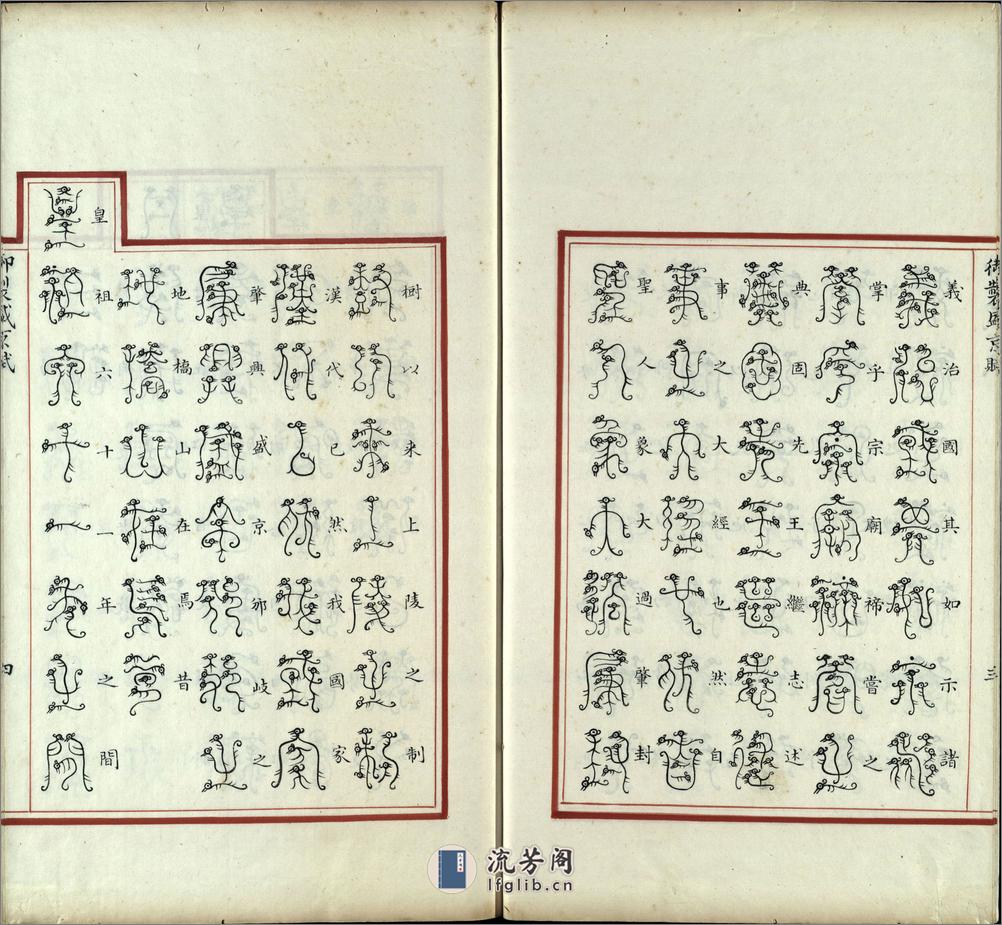 義治國其如示諸
掌乎宗廟禘嘗之
典固先王繼志述
事之大經也然自
聖人象大過肇封
樹以来上陵之制
漢代已然我國家
肇興盛京邠岐之
地橋山在焉昔
皇祖六十一年之間
三
四
流芳阁
lfglib.cn